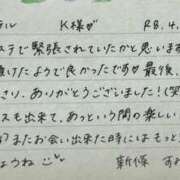 テル K様♡ R8.4.
ステで緊張されていたかと思います
頂けたようで良かったです♡最後、
さり、ありがとうございました!(ス
も出来て、あっという間の楽しい
またお会い出来た時にはもっと
ょうね 新條 すみ